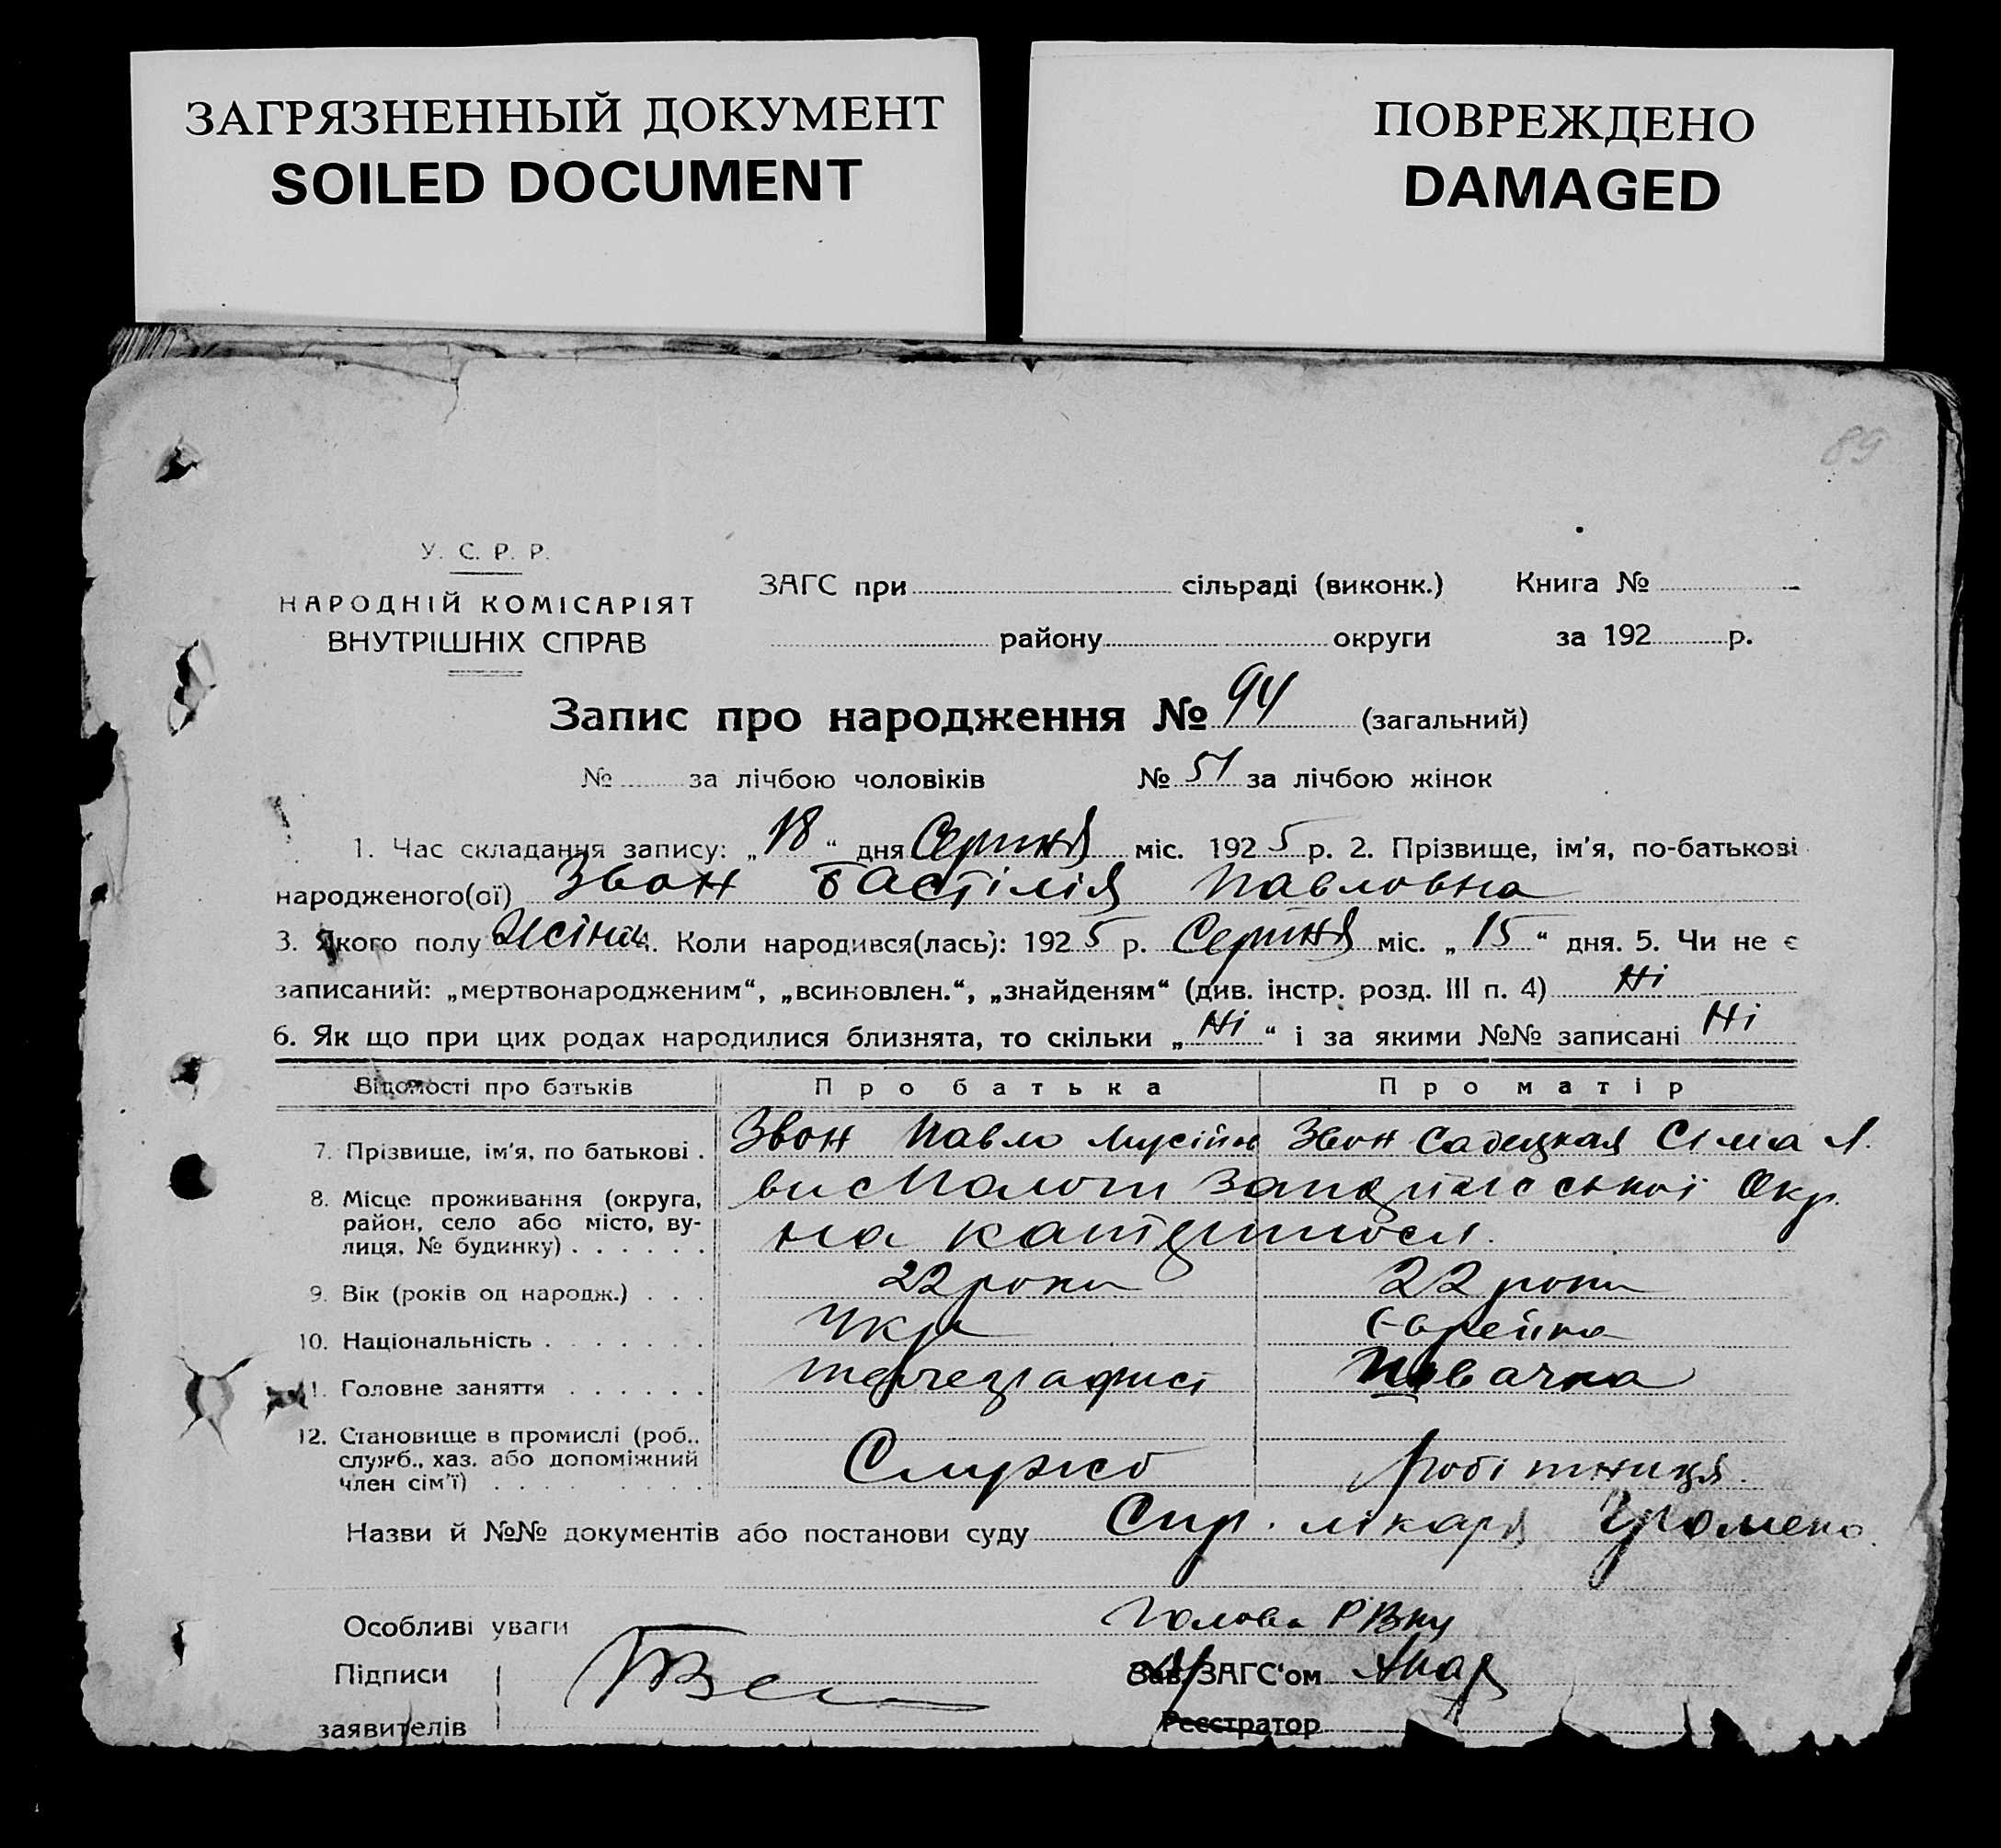 ЗАГРЯЗНЕННЫЙ ДОКУМЕНТ
SOILED DOCUMENT
ПОВРЕЖДЕНО
DAMAGED
89
У. С. Р. Р.
НАРОДНІЙ КОМІСАРІЯТ
ВНУТРІШНІХ СПРАВ
ЗАГС при сільраді (виконк.) Книга №
району округи за 192 р.
Запис про народження № 94 (загальний)
№ за лічбою чоловіків № 51 за лічбою жінок
1. Час складання запису: „18“ дня Серпня міс. 1925 р. 2. Прізвище, ім'я, по-батькові
народженого(ої) Звон Бастілія Павловна
3. Якого полу Жіноч 4. Коли народився(лась): 1925 р. Серпня міс. „15“ дня. 5. Чи не є
записаний: „мертвонародженим“, „всиновлен.“, „знайденям“ (див. інстр. розд. III п. 4) Ні
6. Як що при цих родах народилися близнята, то скільки „Ні“ і за якими №№ записані Ні
Відомості про батьків Про батька Про матір
7. Прізвище, ім'я, по батькові . Звон Павло Мусійов Звон Садецкая Сіма Л.
8. Місце проживання (округа, район, село або місто, вулиця, № будинку) . . . . . . Запоріжської Окр.
9. Вік (років од народж.) . . . 22 роки 22 роки
10. Національність . . . . . . . Укр Єврейка
11. Головне заняття . . . . . . телеграфист Швачка
12. Становище в промислі (роб., служб., хаз. або допоміжний член сім'ї) . . . . . . . . . Службо робітниця.
Назви й №№ документів або постанови суду Спр. лікаря
Особливі уваги Голова РВКу
Підписи Зав. ЗАГС'ом
заявителів Реєстратор